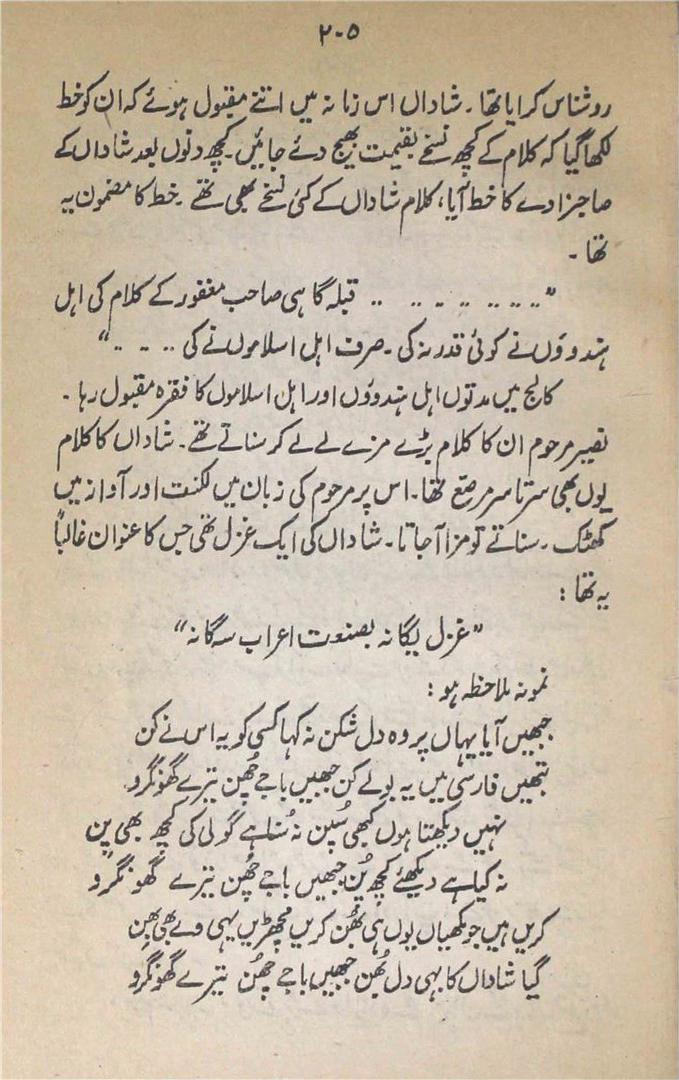 ۲۰۵
روشناس کرایا تھا۔ شاداں اس زمانہ میں اتنے مقبول ہوئے کہ ان کو خط
لکھا گیا کہ کلام کے کچھ نسخے بقیمت بھیج دئے جائیں۔ کچھ دنوں بعد شاداں کے
صاحبزادے کا خط آیا، کلام شاداں کے کئی نسخے بھی تھے ۔ خط کا مضمون یہ
تھا ۔
”.. .. .. .. .. .. .. قبلہ گاہی صاحب مغفور کے کلام کی اہل
ہندوؤں نے کوئی قدر نہ کی ۔ صرف اہل اسلاموں نے کی .. .. ..“
کالج میں مدتوں اہل ہندوؤں اور اہل اسلاموں کا فقرہ مقبول رہا ۔
نصیر مرحوم ان کا کلام بڑے مزے لے لے کر سناتے تھے ۔ شاداں کا کلام
یوں بھی سرتاسر مرصّع تھا ۔ اس پر مرحوم کی زبان میں لکنت اور آواز میں
کھٹک ۔ سناتے تو مزا آجاتا ۔ شاداں کی ایک غزل تھی جس کا عنوان غالباً
یہ تھا :
”غزل یگانہ بصنعت اعراب سہ گانہ“
نمونہ ملاحظہ ہو :
جبھیں آیا یہاں پر وہ دل شکن نہ کہا کسی کو یہ اس نے کن
تبھیں فارسی میں یہ بولے کن جبھیں باجے چھُن تیرے گھونگرو
نہیں دیکھتا ہوں کبھی سُپن نہ سُنا ہے گولی کی کچھ بھی پن
نہ کیا ہے دیکھئے کچھ پُن جبھیں باجے چھُن تیرے گھونگرو
کریں ہیں جو مکھیاں یوں ہی بھُن کریں مچھڑیں یہی وے بھی بھِن
گیا شاداں کا یہی دل بھُن جبھیں باجے چھُن تیرے گھونگرو